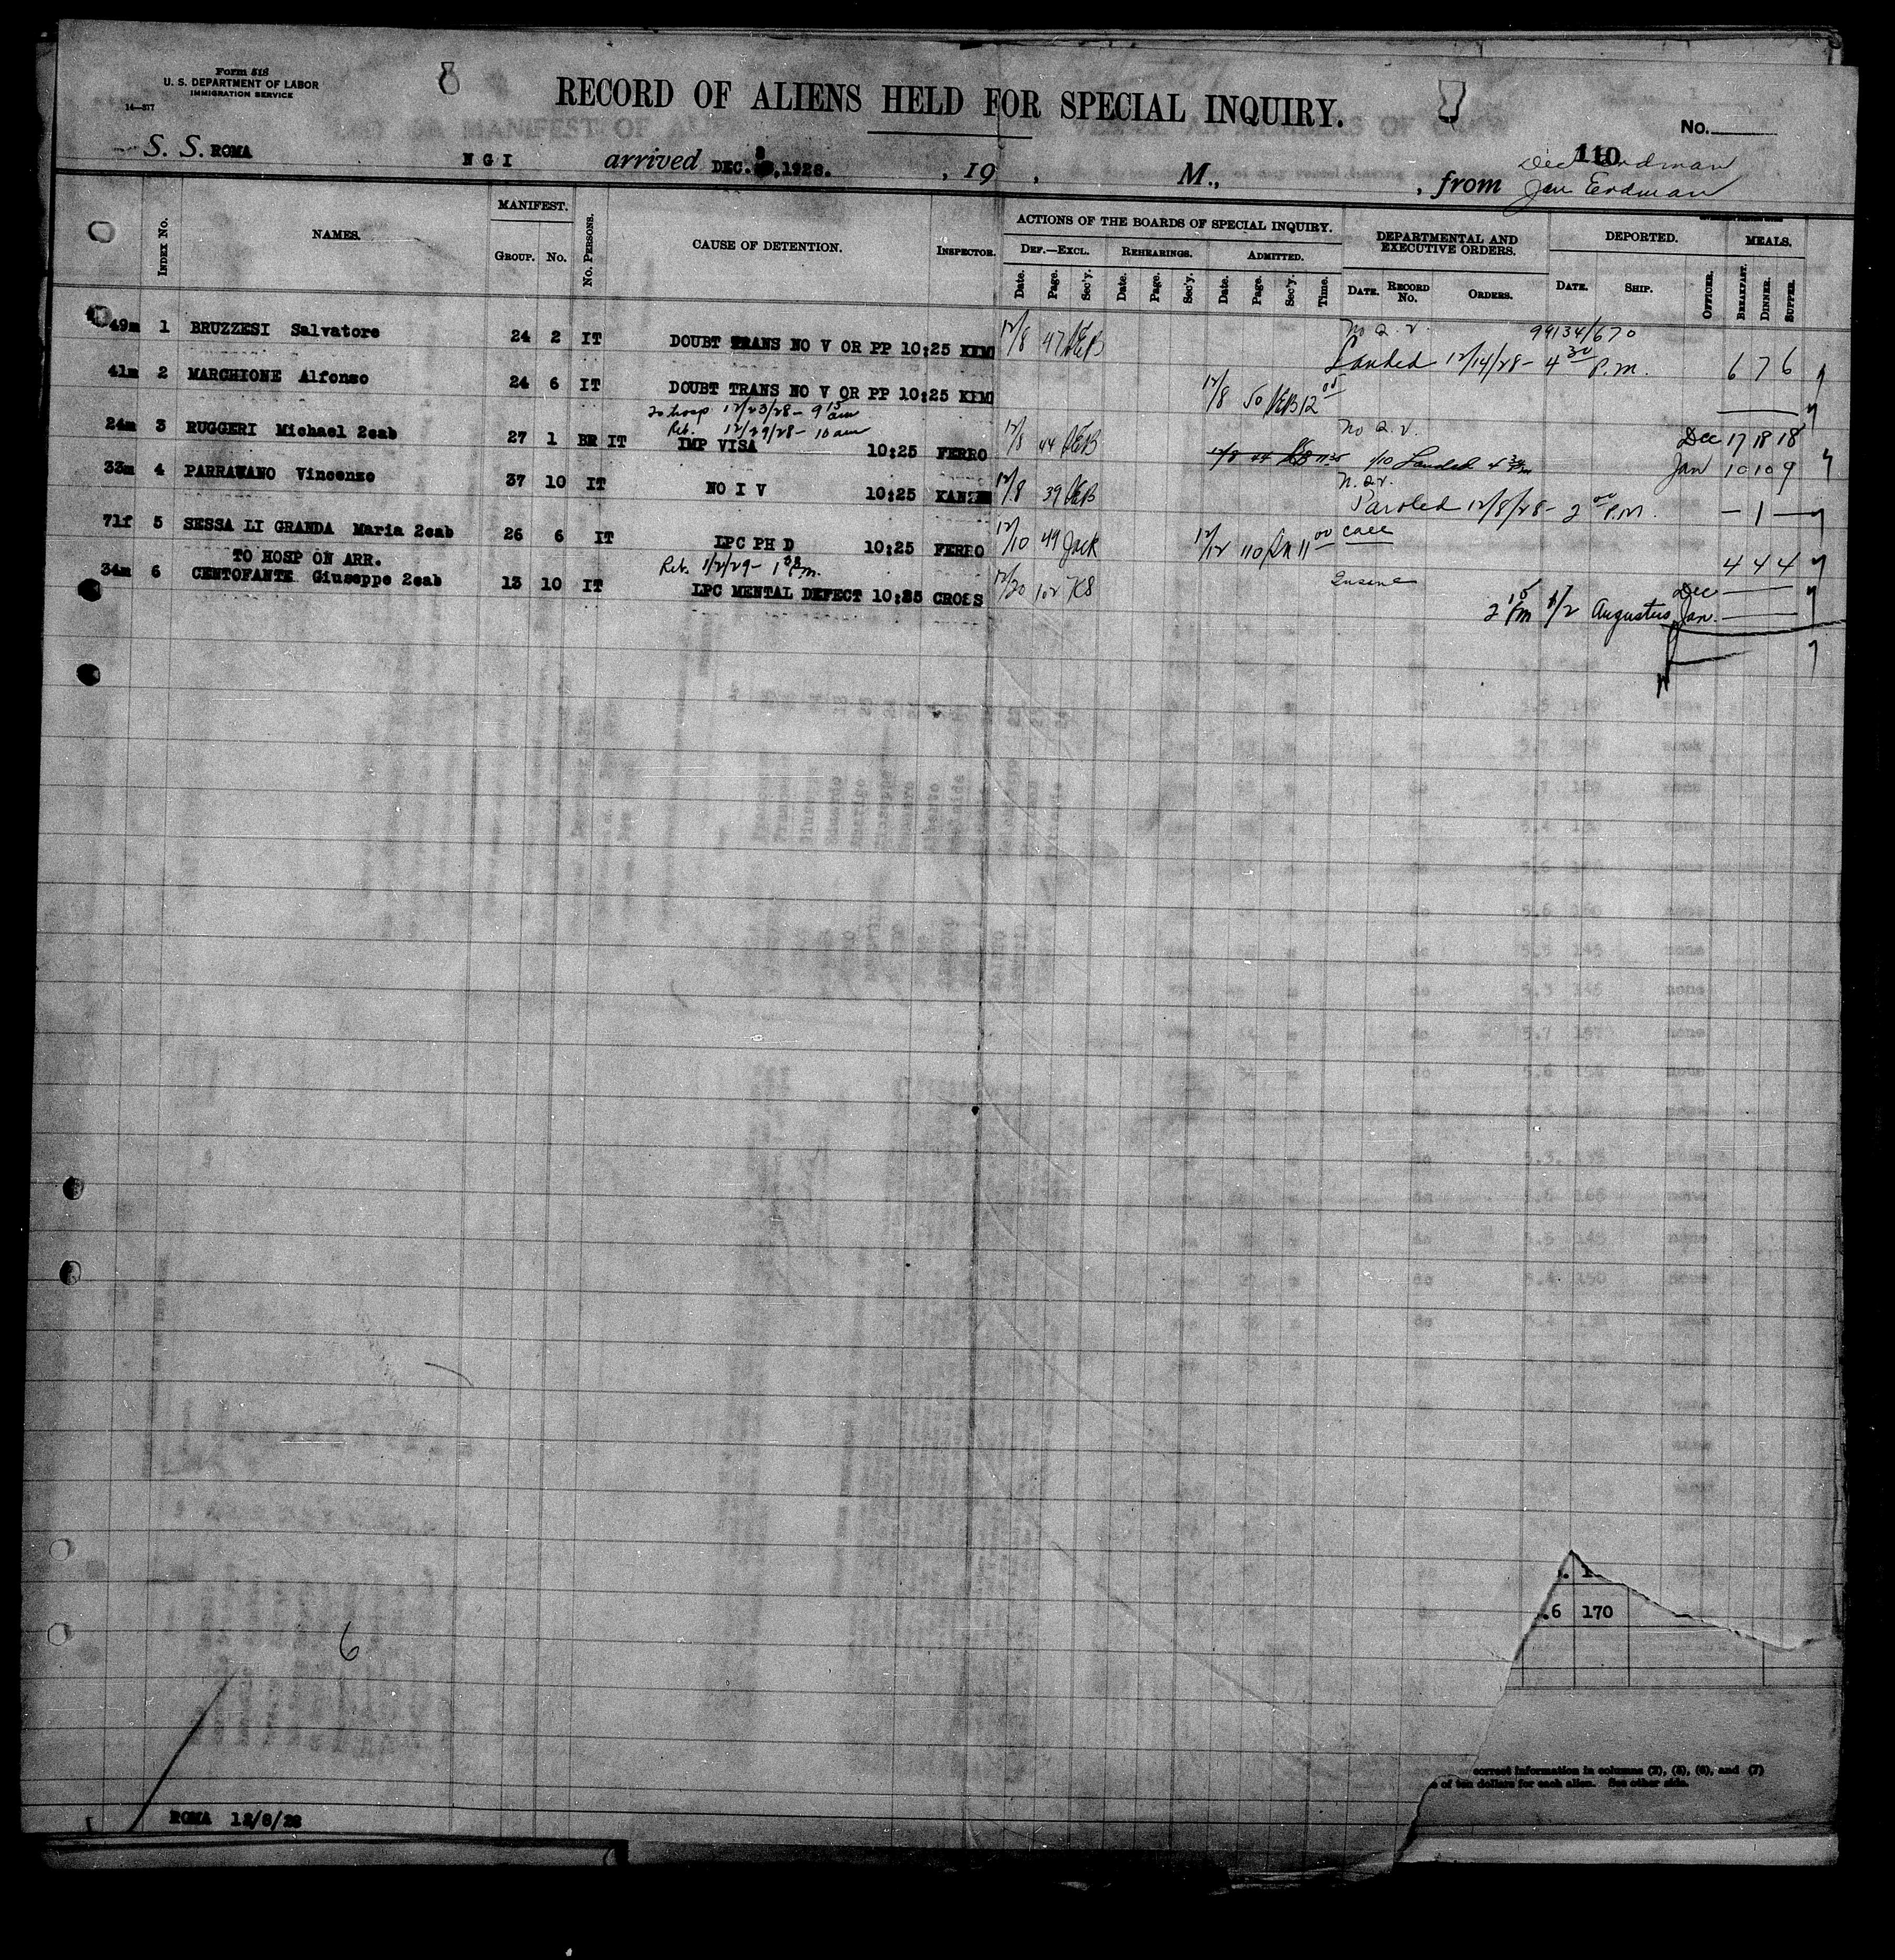 Form 518
U. S. DEPARTMENT OF LABOR
IMMIGRATION SERVICE
14—377
8
RECORD OF ALIENS HELD FOR SPECIAL INQUIRY.
No.
110
S. S. ROMA N G I arrived DEC. 8, 1928. , 19 , M., , from
Dec Erdman
Jan Erdman
INDEX NO. NAMES. MANIFEST. GROUP. NO. NO. PERSONS. CAUSE OF DETENTION. INSPECTOR.
ACTIONS OF THE BOARDS OF SPECIAL INQUIRY.
DEF.—EXCL. REHEARINGS. ADMITTED.
Date. Page. Sec'y. Date. Page. Sec'y. Date. Page. Sec'y. Time.
DEPARTMENTAL AND EXECUTIVE ORDERS.
DATE. RECORD No. ORDERS.
DEPORTED.
DATE. SHIP. OFFICER.
MEALS.
BREAKFAST. DINNER. SUPPER.
no a.v. 99134/670
49m 1 BRUZZESI Salvatore 24 2 IT DOUBT TRANS NO V OR PP 10:25 KEM 12/8 47 Landed 12/14/28 - 4 30 P.M. 6 7 6
41m 2 MARCHIONE Alfonso 24 6 IT DOUBT TRANS NO V OR PP 10:25 KEM 12/8 50 12 00
To hosp 12/23/28 - 9 15 am
Ret. 12/29/28 - 10 am
no a.v.
24m 3 RUGGERI Michael 2cab 27 1 BR IT IMP VISA 10:25 FERRO 12/8 44 12/8 44 1/10 Landed 4 30 pm Dec 17 18 18
Jan 10 10 9
n.a.v.
33m 4 PARRAVANO Vincenzo 37 10 IT NO I V 10:25 12/8 39 Paroled 12/8/28 - 2 00 P.M. — 1 —
71f 5 SESSA LI GRANDA Maria 2cab 26 6 IT LPC PH D 10:25 FERRO 12/10 49 Jack 12/12 110 11 00 Call 4 4 4
TO HOSP ON ARR.
Ret. 1/2/29 - P.m.
34m 6 CENTOFANTE Giuseppe 2cab 13 10 IT LPC MENTAL DEFECT 10:25 CROSS 12/20 102 KS Insane Dec
2 15 Pm 1/2 Augustus Jan.
.6 170
6
correct information in columns (2), (5), (6), and (7)
of ten dollars for each alien. See other side.
ROMA 12/8/28